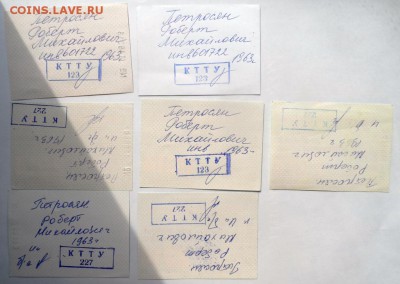 COINS.LAVE.RU
Петросян
Роберт
Михайлович
инв601722
1963г
КТТУ
123
Петросян
Роберт
Михайлович
инв601722
1963г
КТТУ
123
КТТУ
227
Петросян
Роберт
Михайлович
1963г
Петросян
Роберт
Михайлович
инв 1963г
КТТУ
123
КТТУ
227
Петросян
Роберт
Михайлович
1963г
Петросян
Роберт
Михайлович
1963г
КТТУ
227
КТТУ
227
Петросян
Роберт
Михайлович